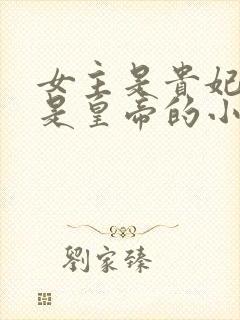 女主是貴妃
是皇帝的小
劉家臻